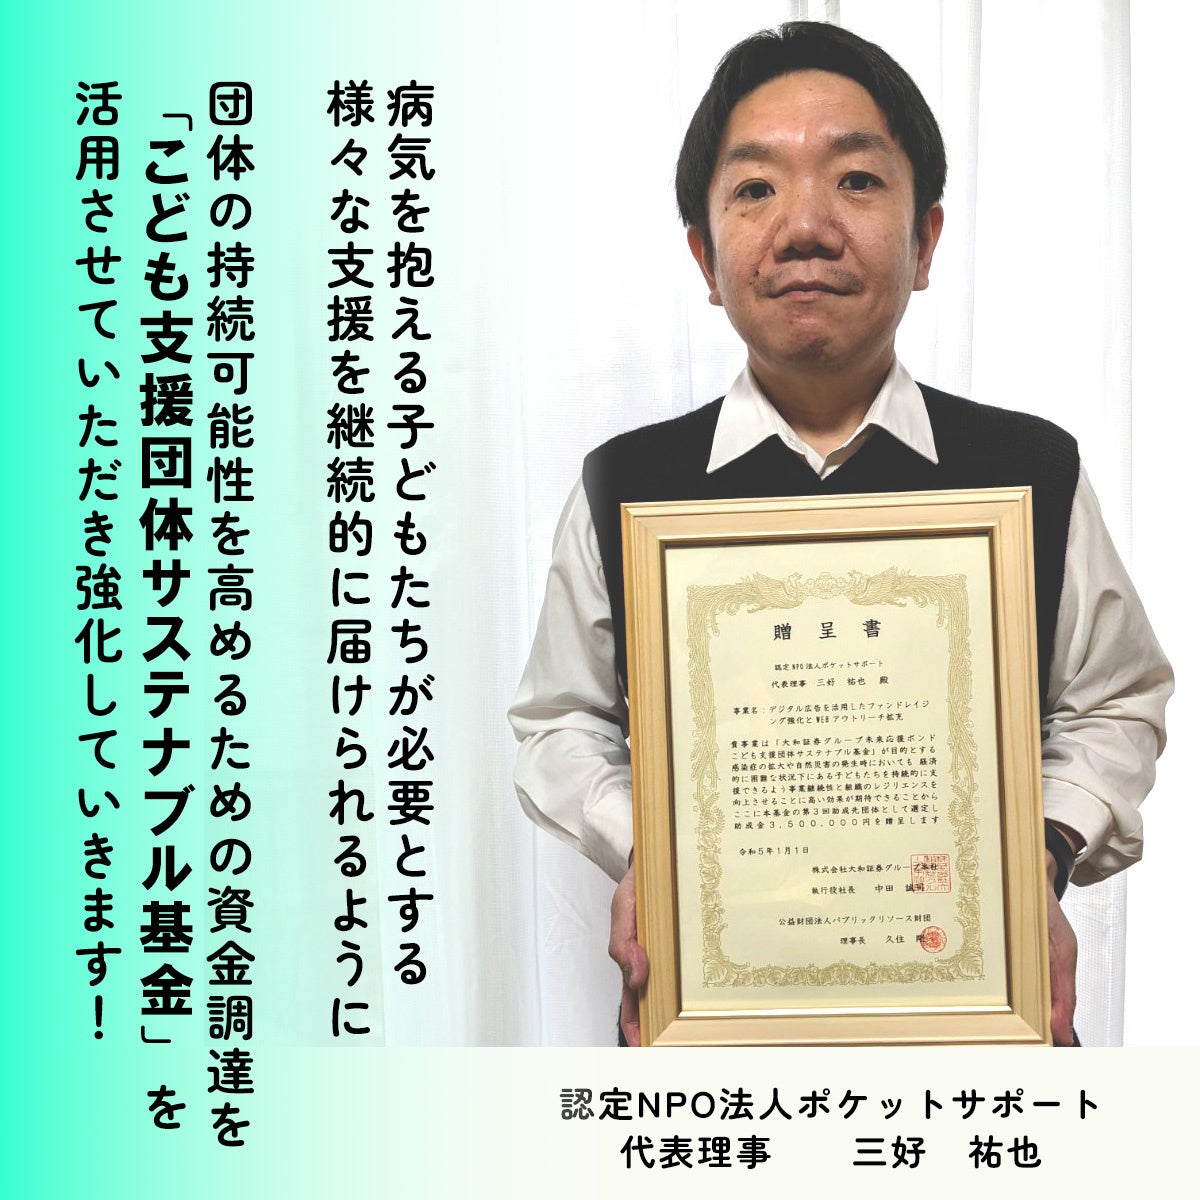 病気を抱える子どもたちが必要とする
様々な支援を継続的に届けられるように
団体の持続可能性を高めるための資金調達を
「こども支援団体サステナブル基金」を
活用させていただき強化していきます!
贈呈書
認定NPO法人ポケットサポート
代表理事 三好 祐也 殿
事業名:デジタル広告を活用したファンドレイジ
ング強化とWEBアウトリーチ拡充
貴事業は「大和証券グループ未来応援ボンド
こども支援団体サステナブル基金」が目的とする
感染症の拡大や自然災害の発生時においても 経済
的に困難な状況下にある子どもたちを持続的に支
援できるよう事業継続性と組織のレジリエンスを
向上させることに高い効果が期待できることから
ここに本基金の第3回助成先団体として選定し
助成金3,500,000円を贈呈します
令和5年1月1日
株式会社大和証券グループ本社
執行役社長 中田 誠司
公益財団法人パブリックリソース財団
理事長 久住 剛
認定NPO法人ポケットサポート
代表理事 三好 祐也